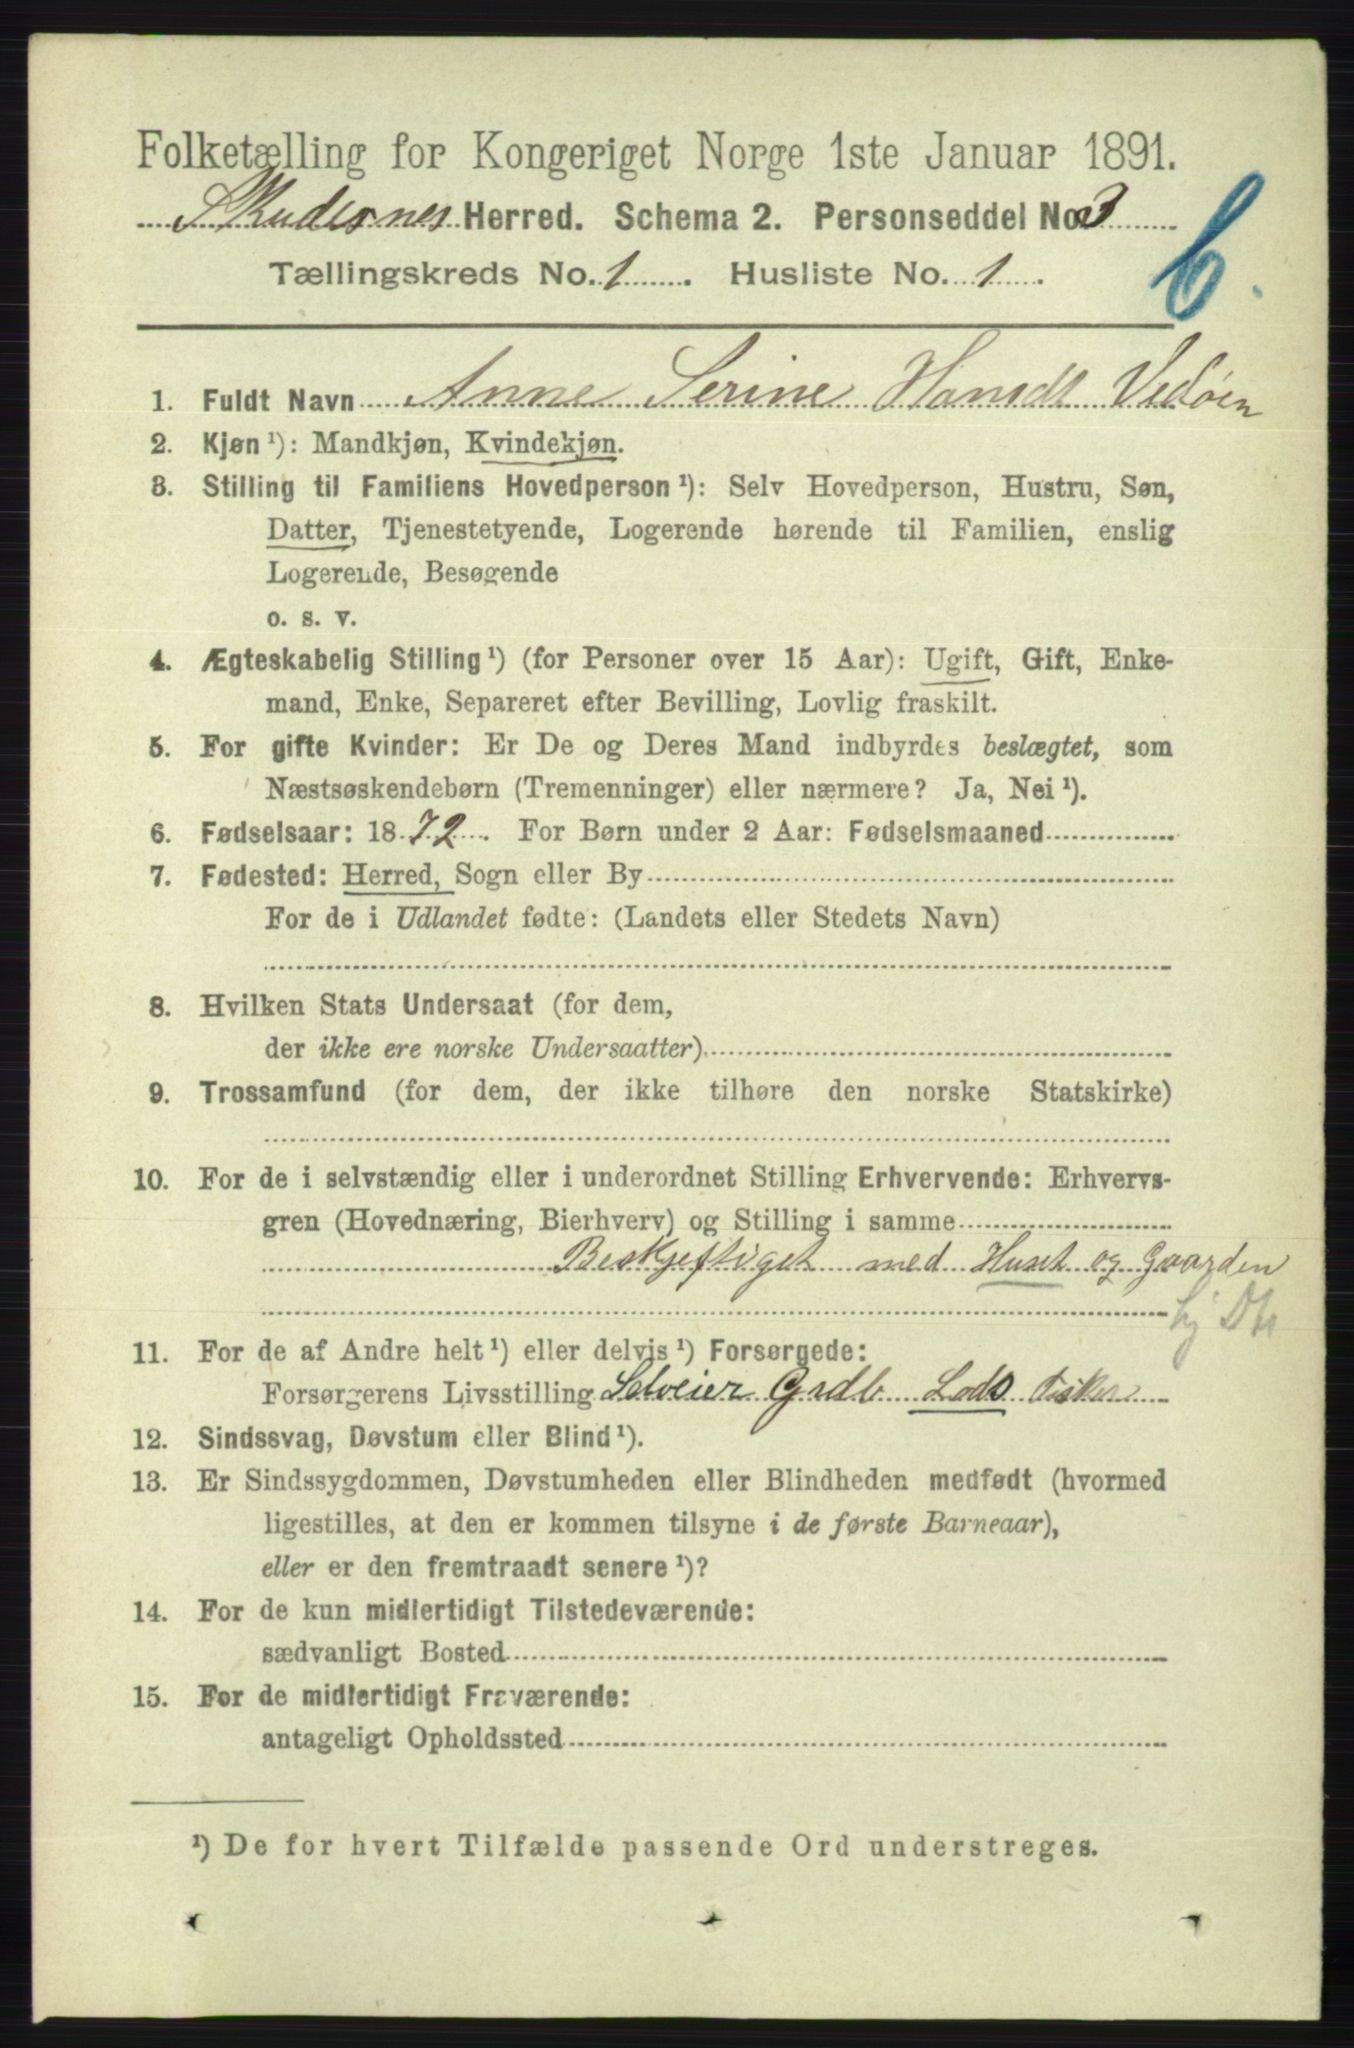 Folketælling for Kongeriget Norge 1ste Januar 1891.
Skudesnes Herred. Schema 2. Personseddel No. 3
Tællingskreds No. 1. Husliste No. 1.
1. Fuldt Navn Anne Serine Hansdt Vedøen
2. Kjøn¹): Mandkjøn, Kvindekjøn.
3. Stilling til Familiens Hovedperson¹): Selv Hovedperson, Hustru, Søn,
Datter, Tjenestetyende, Logerende hørende til Familien, enslig
Logerende, Besøgende
o. s. v.
4. Ægteskabelig Stilling¹) (for Personer over 15 Aar): Ugift, Gift, Enke-
mand, Enke, Separeret efter Bevilling, Lovlig fraskilt.
5. For gifte Kvinder: Er De og Deres Mand indbyrdes beslægtet, som
Næstsøskendebørn (Tremenninger) eller nærmere? Ja, Nei¹).
6. Fødselsaar: 1872. For Børn under 2 Aar: Fødselsmaaned
7. Fødested: Herred, Sogn eller By
For de i Udlandet fødte: (Landets eller Stedets Navn)
8. Hvilken Stats Undersaat (for dem,
der ikke ere norske Undersaatter)
9. Trossamfund (for dem, der ikke tilhøre den norske Statskirke)
10. For de i selvstændig eller i underordnet Stilling Erhvervende: Erhvervs-
gren (Hovednæring, Bierhverv) og Stilling i samme
Beskjeftiget med Huset og Gaarden
11. For de af Andre helt¹) eller delvis¹) Forsørgede:
Forsørgerens Livsstilling Selveier Grdb Lods Fisker
12. Sindssvag, Døvstum eller Blind¹).
13. Er Sindssygdommen, Døvstumheden eller Blindheden medfødt (hvormed
ligestilles, at den er kommen tilsyne i de første Barneaar),
eller er den fremtraadt senere¹)?
14. For de kun midlertidigt Tilstedeværende:
sædvanligt Bosted
15. For de midlertidigt Fraværende:
antageligt Opholdssted
¹) De for hvert Tilfælde passende Ord understreges.